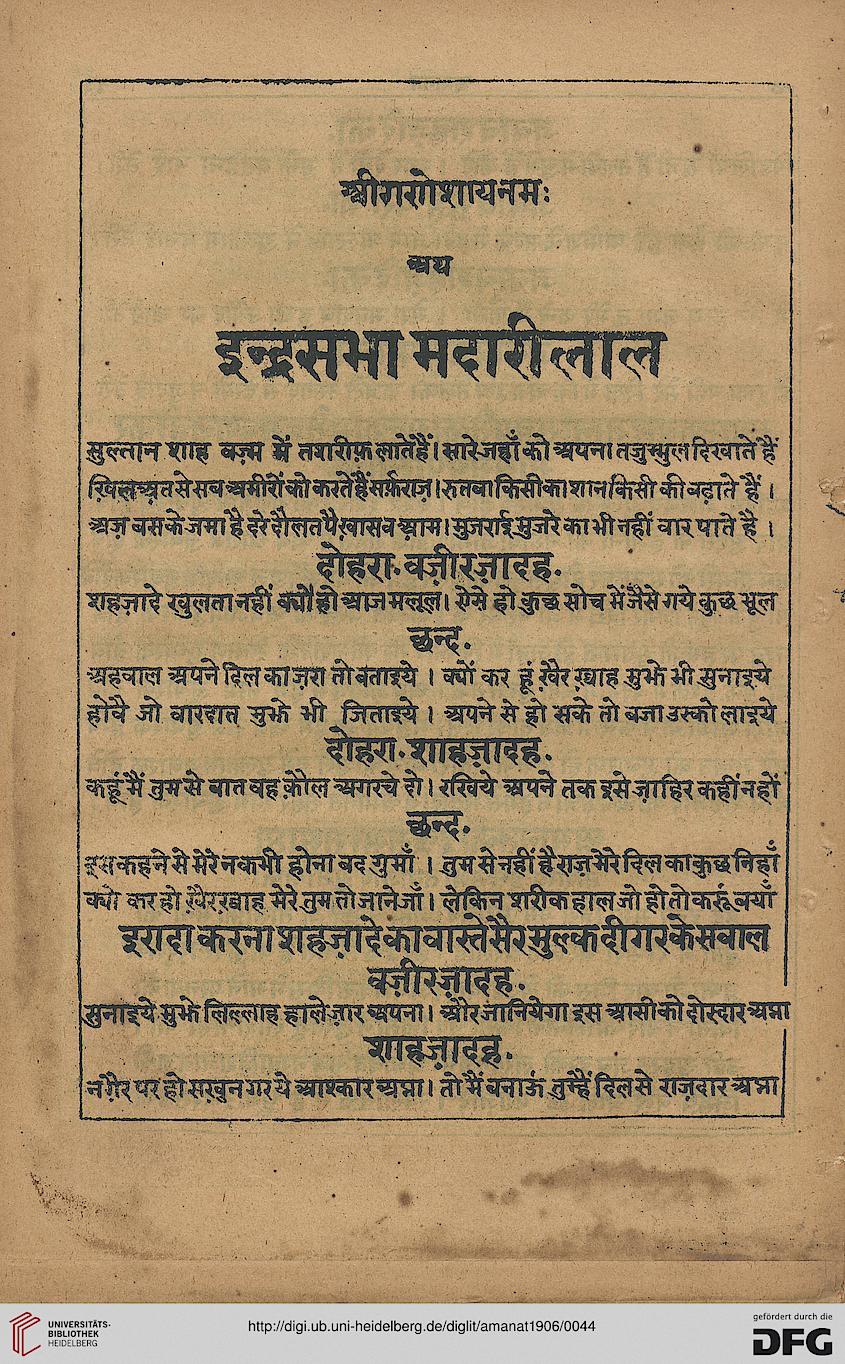 श्रीगणेशायनमः
अथ
इन्द्रसभा मदारीलाल
सुल्तान शाह बज़्म में तशरीफ़ लातेहैं। सारे जहाँ को अपना तजुम्मुल दिखाते हैं
ख़िलअत से सब अमीरों को करतेहैं सर्फ़राज़। रुतबा किसी का शान किसी की बढ़ाते हैं।
अज़ बसके जमा है दरे दौलत पै ख़ास व आम। मुजराई मुजरे का भी नहीं बार पाते हैं।
दोहरा. वज़ीरज़ादह.
शहज़ादे खुलता नहीं क्यों हो आज मलूल। ऐसे हो कुछ सोच में जैसे गये कुछ भूल
छन्द.
अहवाल अपने दिल का ज़रा तो बताइये । क्यों कर हूं ख़ैर ख़्वाह मुझे भी सुनाइये
होवै जो वारदात मुझे भी जिताइये । अपने से हो सके तो बजा उस्को लाइये
दोहरा. शाहज़ादह.
कहूं मैं तुम से बात वह क़ौल अगरचे दो। रखिये अपने तक इसे ज़ाहिर कहीं न हो
छन्द.
इस कहने से मेरे न कभी होना बद गुमाँ । तुम से नहीं है राज़ मेरे दिल का कुछ निहाँ
क्यों कर हो ख़ैरख़्वाह मेरे तुम तो जाने जाँ। लेकिन शरीक हाल जो हो तो करूं बयाँ
इरादा करना शहज़ादे का वास्ते सैर मुल्क दीगर के सवाल
वज़ीरज़ादह.
सुनाइये मुझे लिल्लाह हाले ज़ार अपना। और जानियेगा इस आसी को दोस्दार अप्ना
शाहज़ादह.
न ग़ैर पर हो सख़ुन गर ये आश्कार अप्ना। तो मैं बनाऊं तुम्हैं दिल से राज़दार अप्ना
UNIVERSITÄTS-
BIBLIOTHEK
HEIDELBERG
http://digi.ub.uni-heidelberg.de/diglit/amanat1906/0044
gefördert durch die
DFG